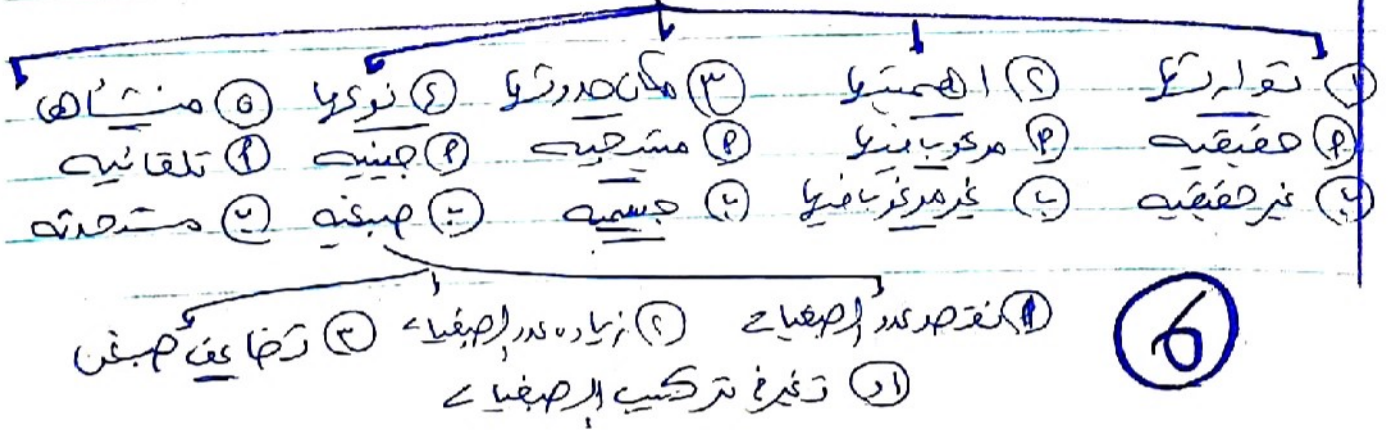 ① توارثها ② اهميتها ③ مكان حدوثها ④ نوعها ⑤ منشأها
أ حقيقيه أ مرغوب فيها أ مشيجيه أ جينيه أ تلقائيه
ب غير حقيقيه ب غير مرغوب فيها ب جسميه ب صبغيه ب مستحدثه
① نقص عدد الصبغيات ② زياده عدد الصبغيات ③ تضاعف صبغى
تغير فى تركيب الصبغيات
6